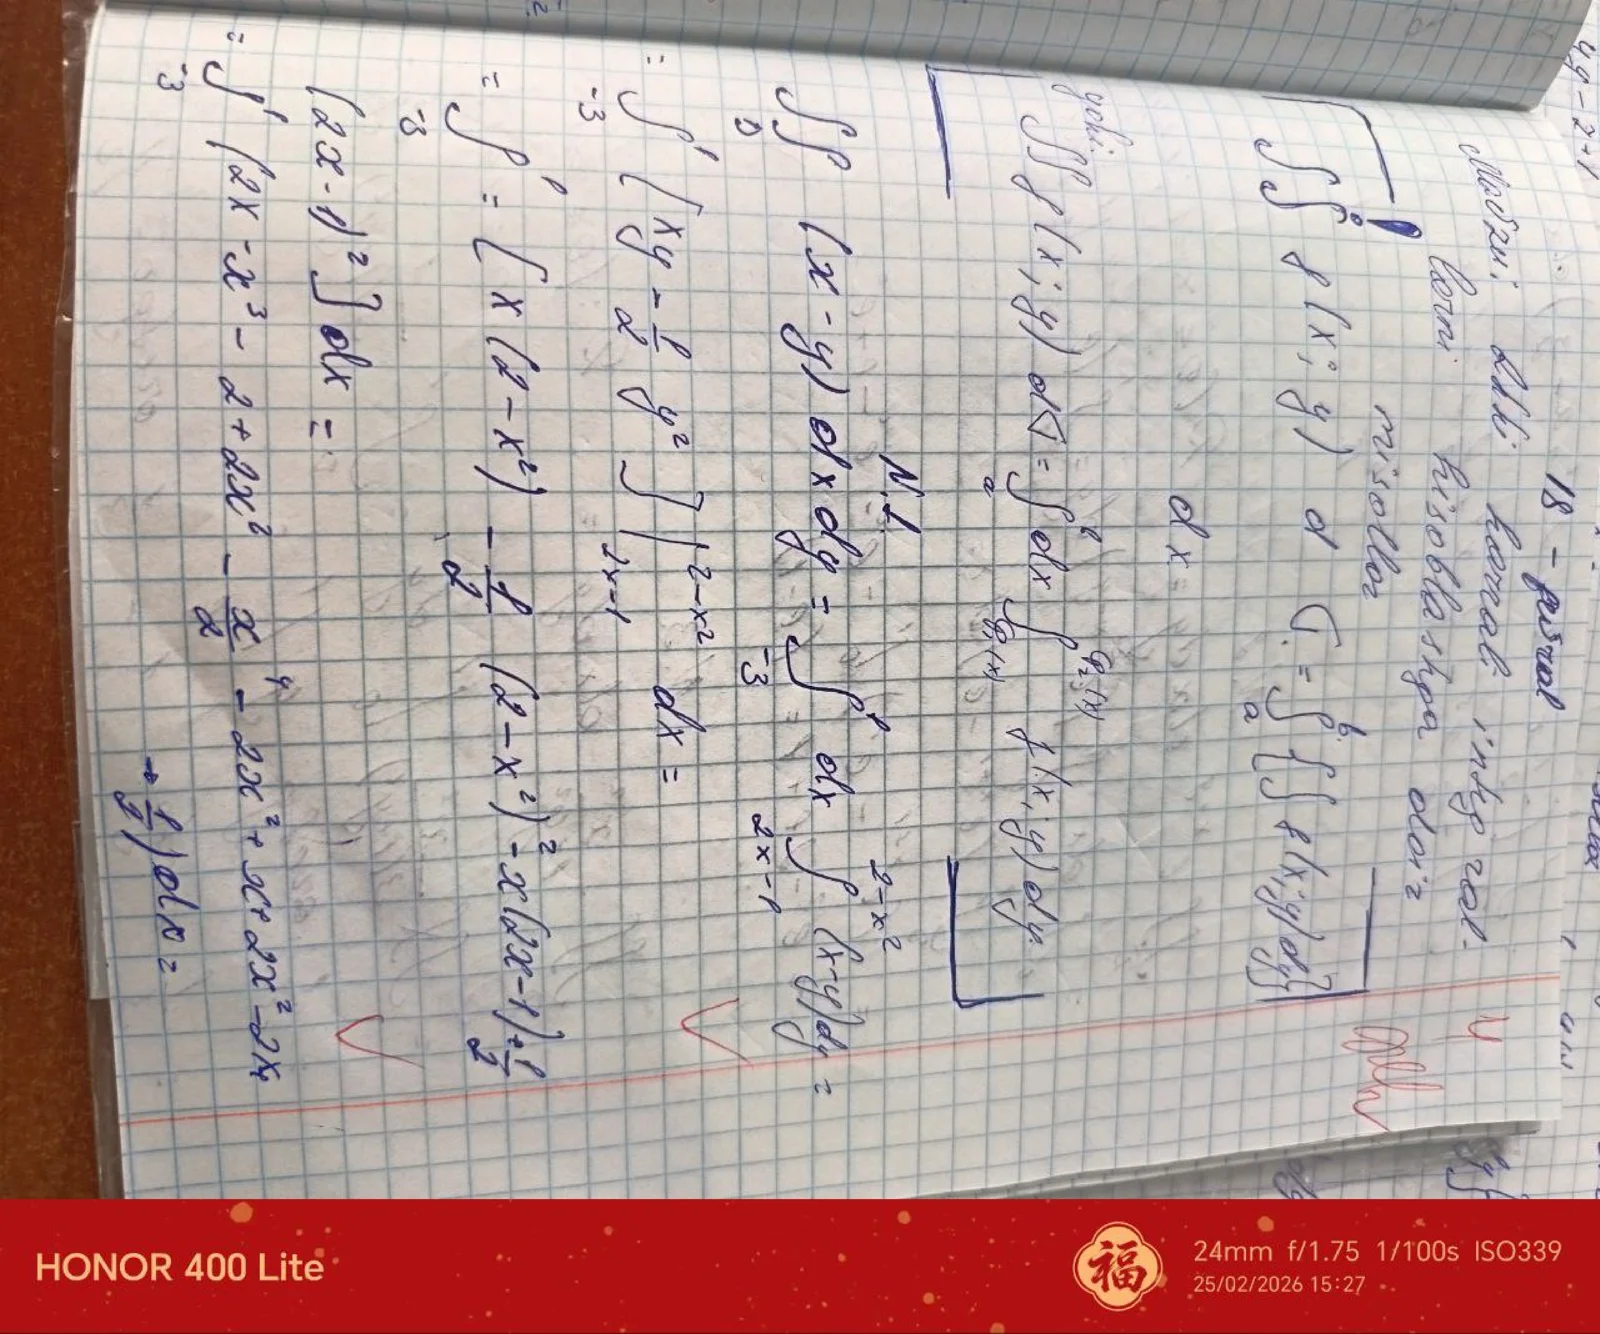 18 -
Mavzu: Ikki karrali integral-
larni hisoblashga doir
misollar
∫∫ f(x; y) d σ = ∫ₐᵇ {∫ f(x; y) dy}
dx =
yoki:
∫∫ f(x; y) dσ = ∫ₐᵇ dx ∫_{φ₁(x)}^{φ₂(x)} f(x; y) dy.
N.1.
∫∫_D (x - y) dx dy = ∫_{-3}^{1} dx ∫_{2x-1}^{2-x²} (x-y) dy =
= ∫_{-3}^{1} [xy - 1/2 y²] |_{2x-1}^{2-x²} dx =
= ∫_{-3}^{1} = [x(2 - x²) - 1/2 (2 - x²)² - x(2x-1) + 1/2
(2x - 1)²] dx =
= ∫_{-3}^{1} (2x - x³ - 2 + 2x² - x⁴/2 - 2x² + x + 2x² - 2x
+ 1/2) dx =
HONOR 400 Lite
福
24mm f/1.75 1/100s ISO339
25/02/2026 15:27